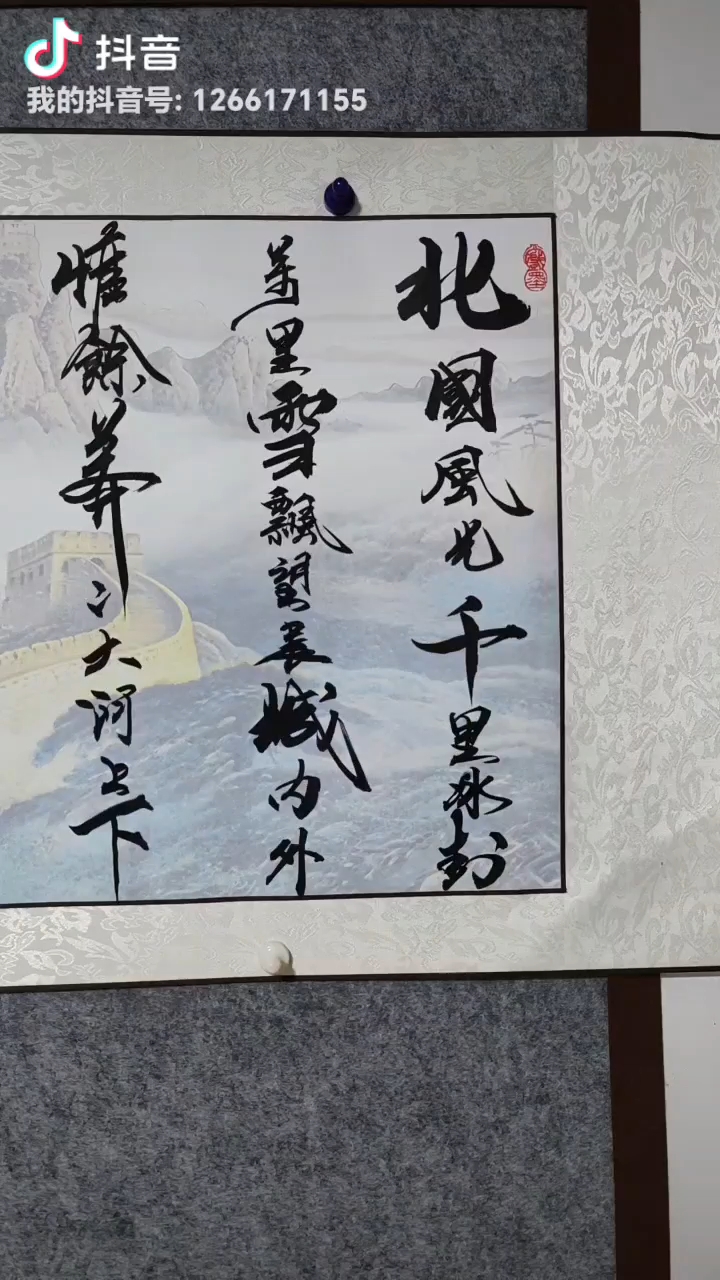 抖音
我的抖音号: 1266171155
北國風光千里冰封
萬里雪飄望長城内外
惟餘莽冫大河上下